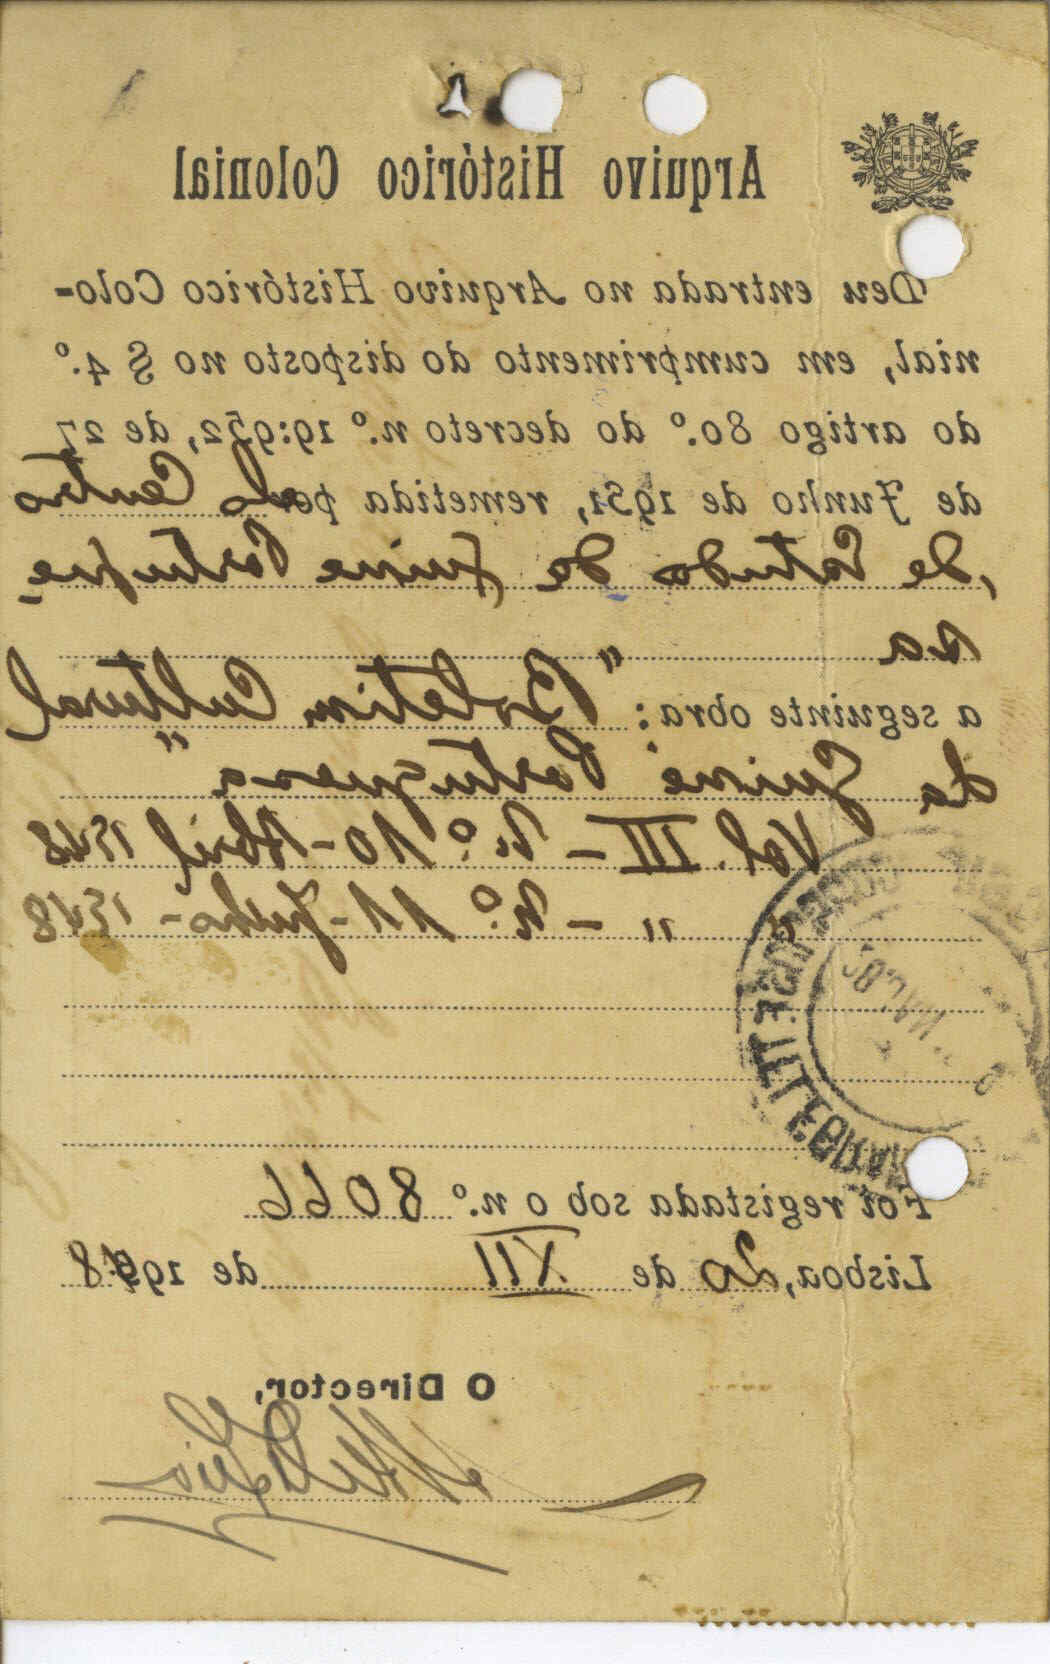 Arquivo Histórico Colonial
Deu entrada no Arquivo Histórico Colo-
nial, em cumprimento do disposto no § 4.º
do artigo 80.º do decreto n.º 19:952, de 27
de Junho de 1931, remetida pelo Centro
de Estudos da Guiné Portugue-
sa
a seguinte obra: "Boletim Cultural
da Guiné Portuguesa"
Vol. III - N.º 10 - Abril 1948
" " - N.º 11 - Julho - 1948
Foi registada sob o n.º 8066
Lisboa, 20 de XII de 1948
O Director,